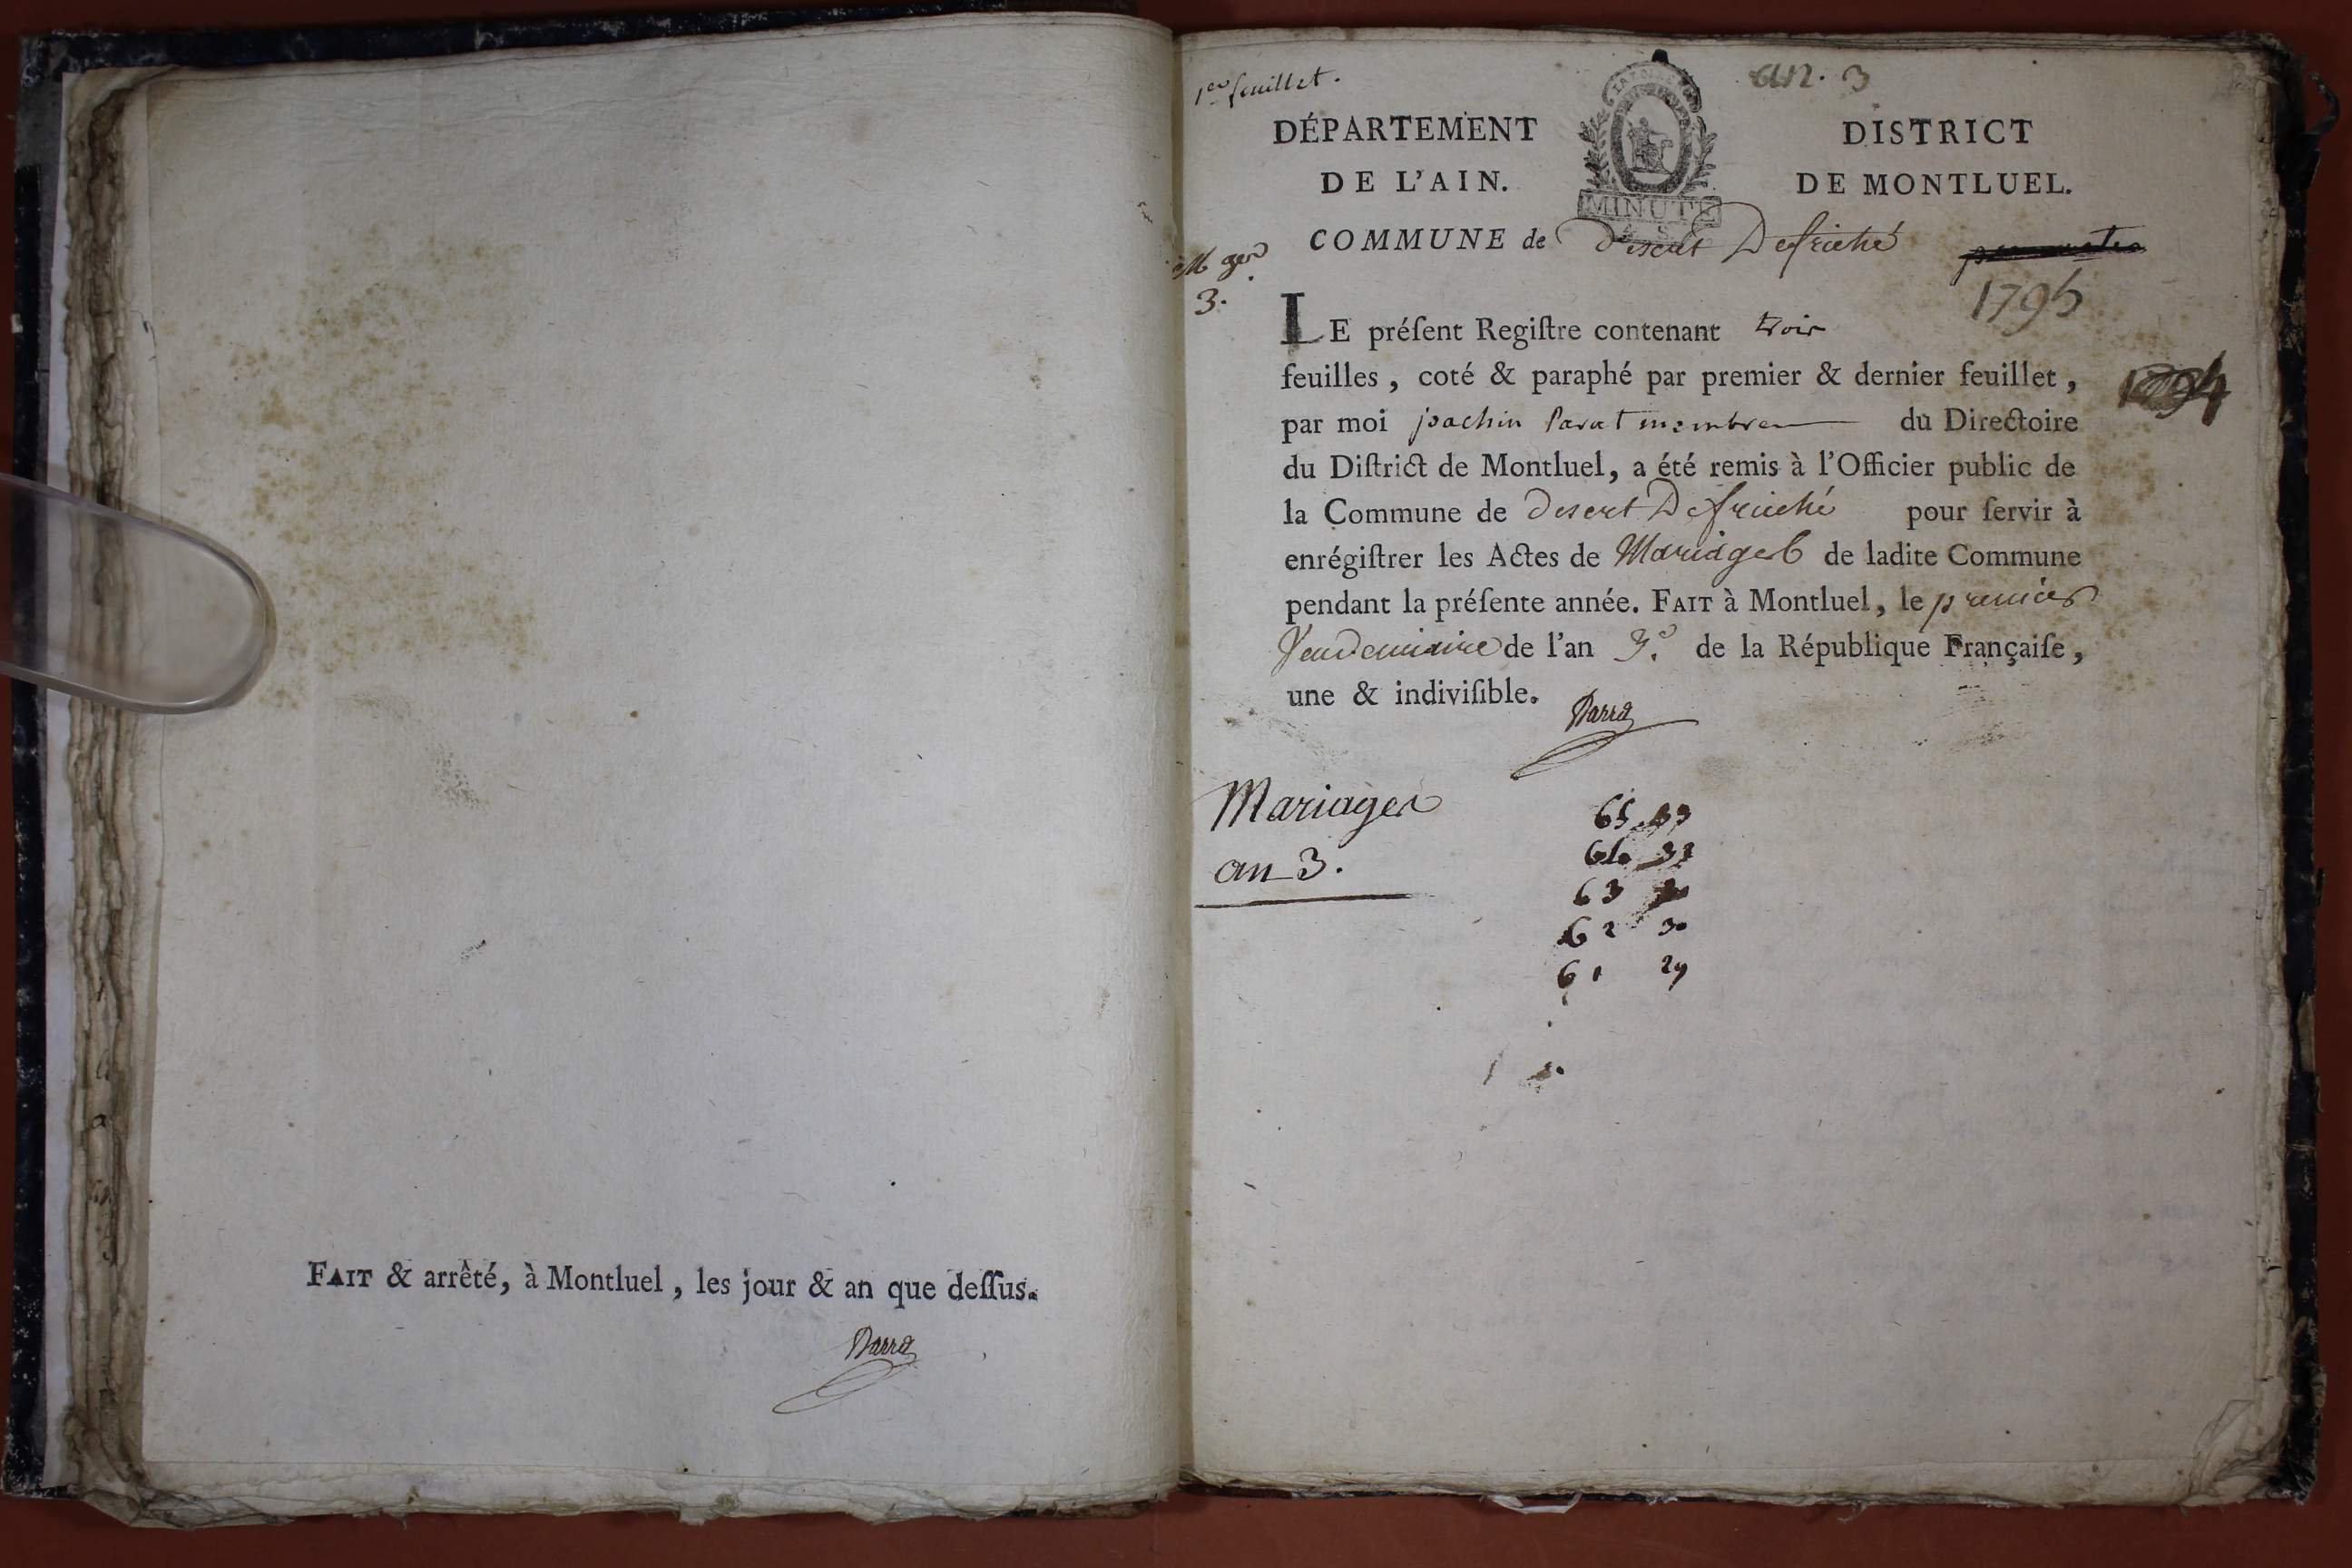 FAIT & arrêté, à Montluel, les jour & an que deſſus.
Parra
1er feuillet.
an. 3
DÉPARTEMENT
DE L'AIN.
MINUTE
DISTRICT
DE MONTLUEL.
COMMUNE de Desert Defriché
1795
3.
LE préſent Regiſtre contenant trois
feuilles, coté & paraphé par premier & dernier feuillet,
par moi joachin Parat membre du Directoire
du Diſtrict de Montluel, a été remis à l'Officier public de
la Commune de Desert Defriché pour ſervir à
enrégiſtrer les Actes de Mariages de ladite Commune
pendant la préſente année. FAIT à Montluel, le premier
Vendemiaire de l'an 3e. de la République Françaiſe,
une & indiviſible.
Parra
Mariages
an 3.
65 33
64 32
63
62 30
61 29